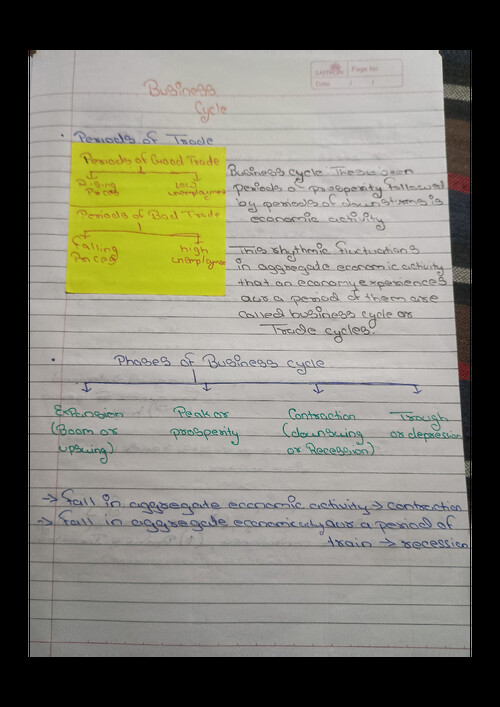 SATHION
Page No.
Date / /
Business
Cycle
• Periods of Trade
Periods of Good Trade
Rising Prices
Low unemploymen
Periods of Bad Trade
falling Prices
high unemployme
Business cycle
periods of prosperity followed
by periods of downstrens is
economic activity
This rhythmic fluctuations
in aggregate economic activity
that an economy experiences
a period of them are
called business cycle or
Trade cycles.
• Phases of Business cycle
Expansion (Boom or upswing)
Peak or prosperity
Contraction (downswing or Recession)
Trough or depression
→ fall in aggregate economic activity → contraction
→ fall in aggregate a period of
train → recession